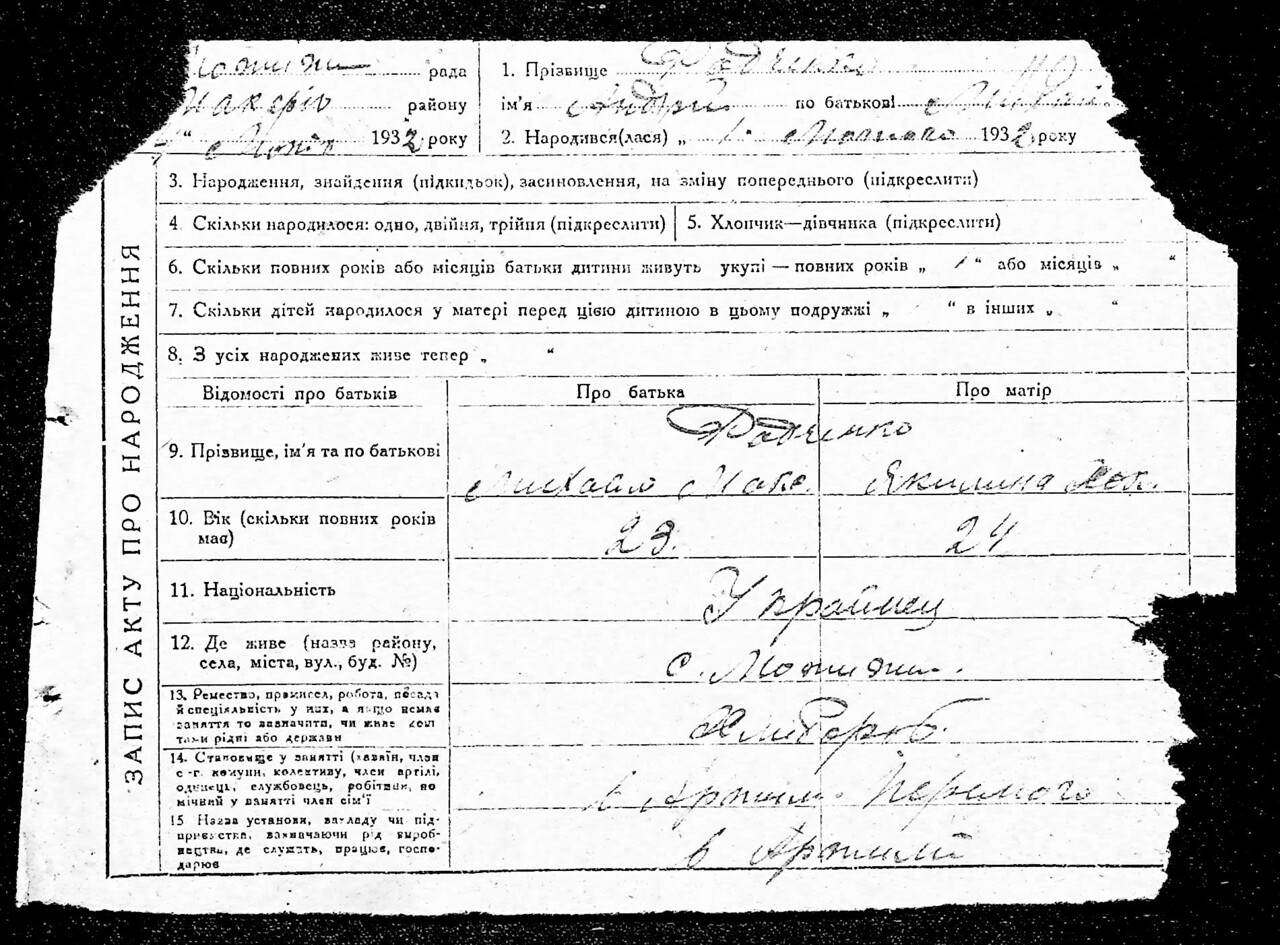 рада
Макерів району
1932 року
1. Прізвище Радченко
ім'я Андрій по батькові Мих
2. Народився(лася) „ 1 " Лютого 1932 року
ЗАПИС АКТУ ПРО НАРОДЖЕННЯ
3. Народження, знайдення (підкидьок), засиновлення, на зміну попереднього (підкреслити)
4. Скільки народилося: одно, двійня, трійня (підкреслити) 5. Хлопчик—дівчинка (підкреслити)
6. Скільки повних років або місяців батьки дитини живуть укупі — повних років „ 1 “ або місяців „ “
7. Скільки дітей народилося у матері перед цією дитиною в цьому подружжі „ “ в інших „ “
8. З усіх народжених живе тепер „ “
Відомості про батьків Про батька Про матір
9. Прізвище, ім'я та по батькові
Радченко
Михайло Макс. Якилина
10. Вік (скільки повних років має)
23. 24
11. Національність
Українец
12. Де живе (назва району,
села, міста, вул., буд. №)
с. Мотижин.
13. Ремество, промисел, робота, посада
й спеціяльність у них, а якщо немає
заняття то зазначити, чи живе кош
тами рідні або держави
Хлибороб.
14. Становище у занятті (хазяїн, член
с.-г. комуни, колективу, член артілі,
одинець, службовець, робітник, по
мічний у занятті член сім'ї
в Артили Перемога
15 Назва установи, закладу чи під-
приємства, зазначаючи рід вироб-
ництва, де служить, працює, госпо-
дарює
в Артилі